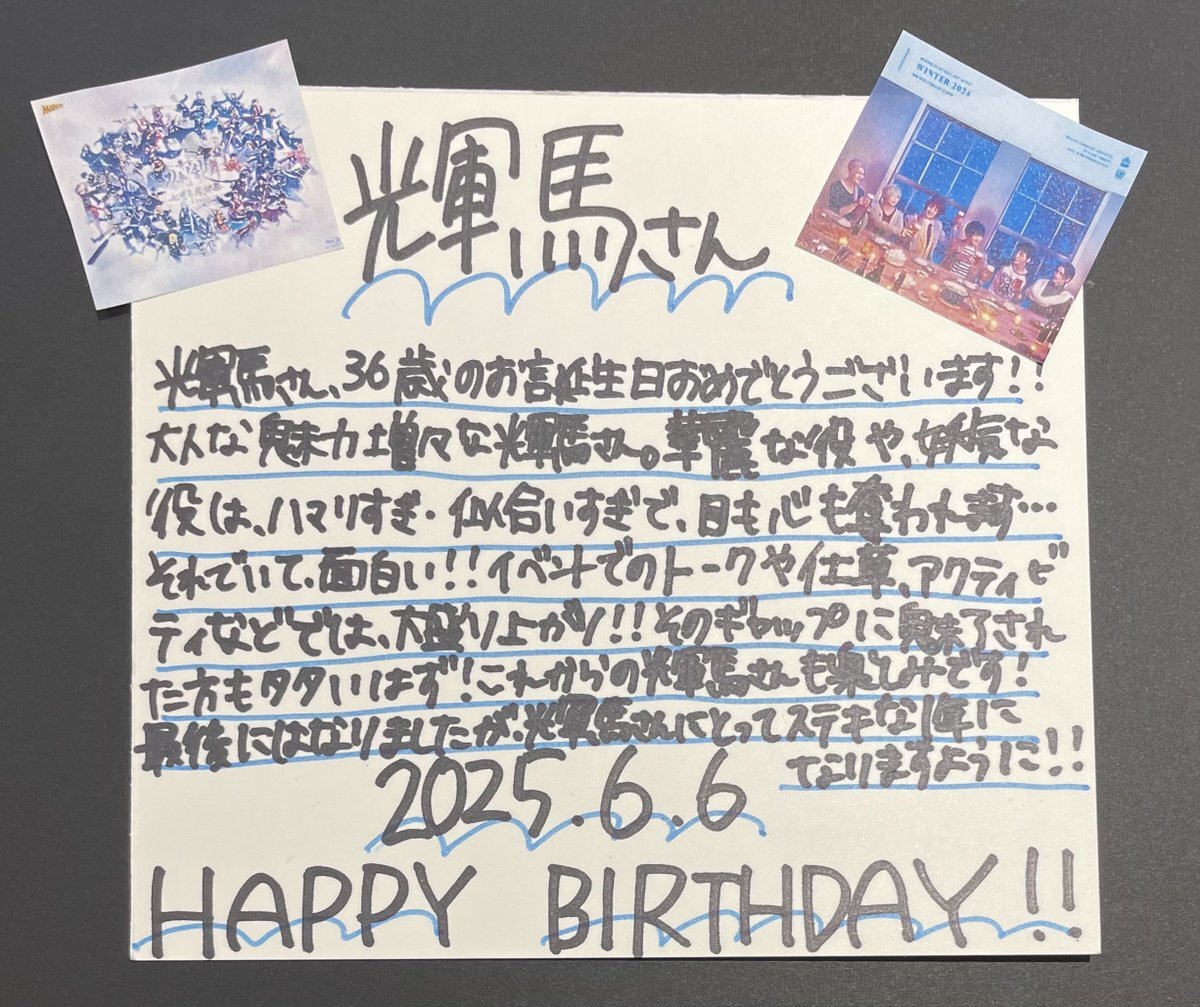 WINTER 2024
輝馬さん
輝馬さん、36歳のお誕生日おめでとうございます!!
大人な魅力増々な輝馬さん。華麗な役や、妖気な
役は、ハマりすぎ・似合いすぎで、目も心も奪われます…
それでいて、面白い!!イベントでのトークや仕草、アクティビ
ティなどでは、大盛り上がり!!そのギャップに魅了され
た方もタタいはず!これからの輝馬さんも楽しみです!
最後にはなりましたが、輝馬さんにとってステキな1年に
なりますように!!
2025.6.6
HAPPY BIRTHDAY!!